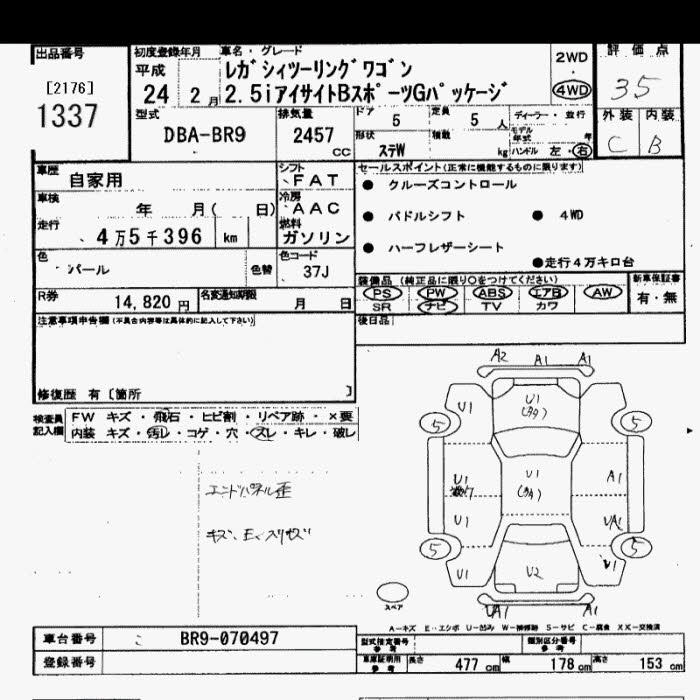 出品番号
[2176]
1337
初度登録年月
平成
24 2 月
車名・グレード
レガシィツーリングワゴン
2.5iアイサイトBスポーツGパッケージ
2WD
4WD
評価点
35
型式
DBA-BR9
排気量
2457
CC
ドア
5
定員
5 人
ディーラー・並行
形状
ステW
積載
kg
モデル年式
年
ハンドル 左・右
外装 内装
C B
車歴
自家用
シフト
FAT
車検
年 月( 日)
冷房
AAC
走行
4万5千396 km
燃料
ガソリン
色
パール
色替
色コード
37J
R券
14,820 円
名変通知期限
月 日
セールスポイント(正常に機能するものに限ります)
● クルーズコントロール
● パドルシフト ● 4WD
● ハーフレザーシート
●走行4万キロ台
装備品 (純正品に限り○をつけてください)
PS PW ABS エアB AW
SR ナビ TV カワ
新車保証書
有・無
後日品
注意事項申告欄(不具合内容等は具体的に記入して下さい)
修復歴 有 [箇所 ]
検査員記入欄
FW キズ・飛石・ヒビ割・リペア跡・×要
内装 キズ・汚レ・コゲ・穴・スレ・キレ・破レ
エンドパネル歪
A2 A1 A1
U1
U1
5 5
U1
U1
A1
U1
UA1
5 5
U1
U2
U1
UA1 A1
スペア
A-キズ E-エクボ U-凹み W-補修跡 S-サビ C-腐食 XX-交換済
車台番号
BR9-070497
登録番号
型式指定番号
参考
類別区分番号
参考
車庫証明用
参考
長さ 477 cm 幅 178 cm 高さ 153 cm